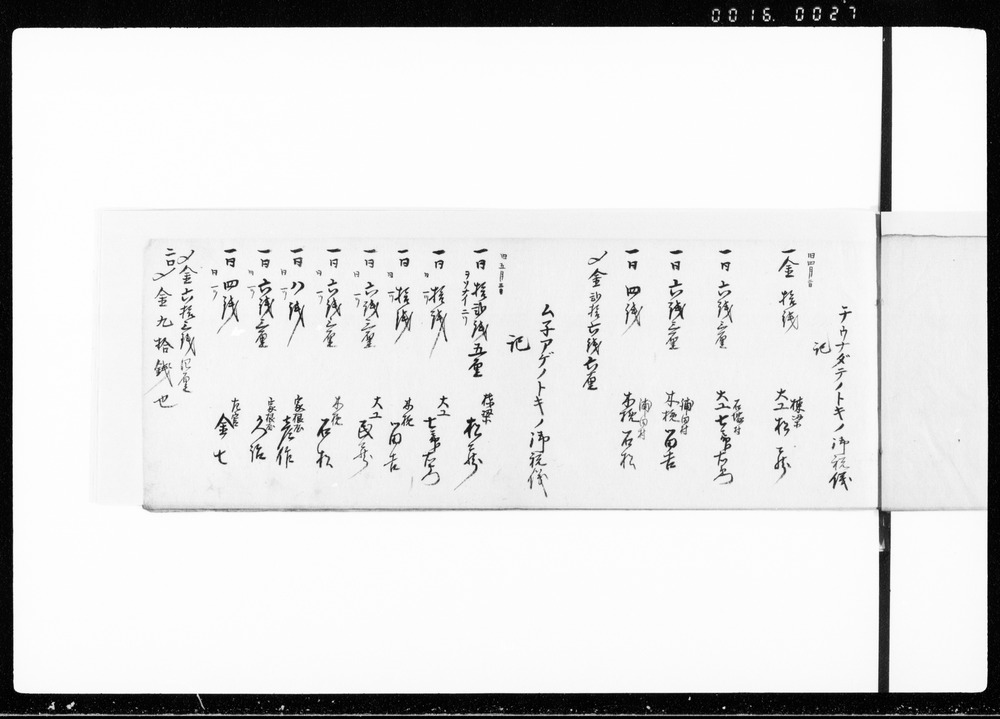 0016. 0027
テウナダテノトキノ御祝儀
記
旧四月
一金 拾銭 棟梁 大工 松蔵
一〃 六銭三厘 石塚村 大工 七郎右衛門
一〃 六銭三厘 浦田村 木挽 留吉
一〃 四銭 浦田村 木挽 石松
〆金弐拾六銭六厘
ムネアゲノトキノ御祝儀
記
旧五月
一〃 拾弐銭五厘 棟梁 松蔵
一〃 拾銭 大工 七郎右衛門
一〃 拾銭 木挽 留吉
一〃 六銭三厘 大工 民蔵
一〃 六銭三厘 木挽 石松
一〃 八銭 家根屋 彦作
一〃 六銭三厘 家根屋 久治
一〃 四銭 左官 金七
〆金六拾三銭四厘
〆金九拾銭也